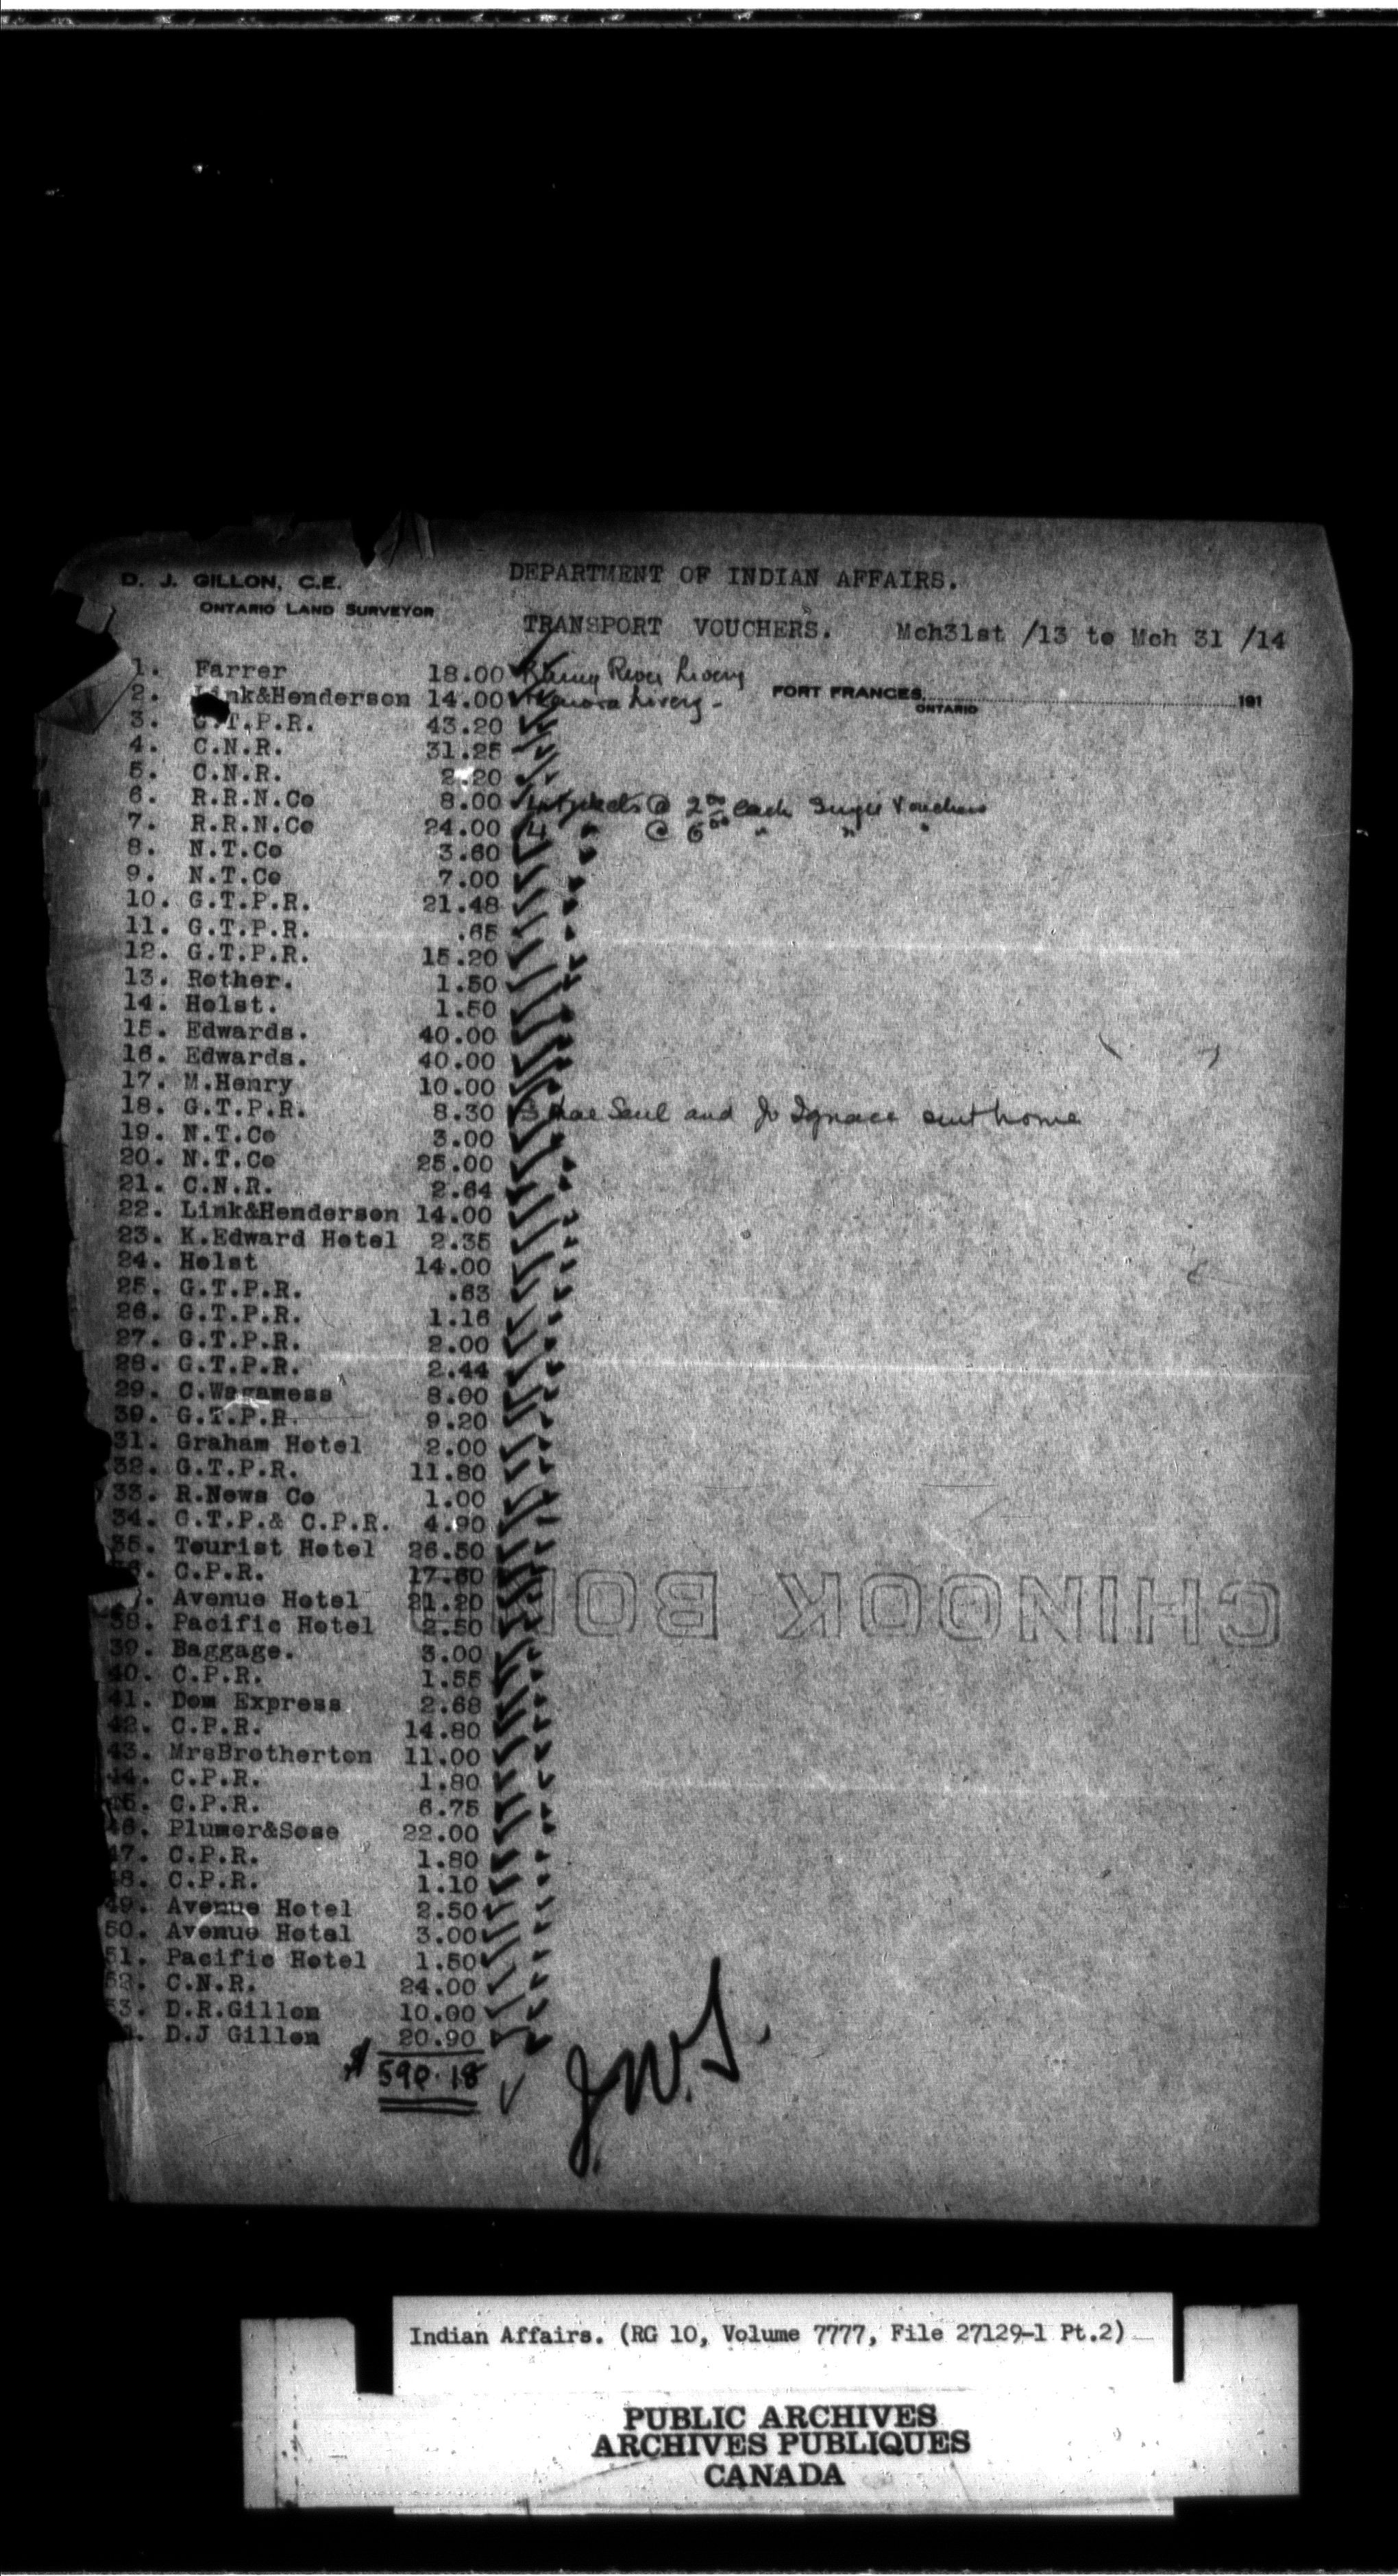 D. J. GILLON, C.E.
ONTARIO LAND SURVEYOR
DEPARTMENT OF INDIAN AFFAIRS.
TRANSPORT VOUCHERS. Mch31st /13 to Mch 31 /14
FORT FRANCES, 191
ONTARIO
1. Farrer 18.00 Rainy River Livery
2. Link&Henderson 14.00 Kenora Livery -
3. G.T.P.R. 43.20
4. C.N.R. 31.25
5. C.N.R. 2.20
6. R.R.N.Co 8.00 4 tickets @ 2 00 each Vouchers
7. R.R.N.Co 24.00 4 " @ 6 00 " " "
8. N.T.Co 3.60
9. N.T.Co 7.00
10. G.T.P.R. 21.48
11. G.T.P.R. .65
12. G.T.P.R. 15.20
13. Rother. 1.50
14. Holst. 1.50
15. Edwards. 40.00
16. Edwards. 40.00
17. M.Henry 10.00
18. G.T.P.R. 8.30 Saul and Jo Ignace sent home
19. N.T.Co 3.00
20. N.T.Co 25.00
21. C.N.R. 2.64
22. Link&Henderson 14.00
23. K.Edward Hotel 2.35
24. Holst 14.00
25. G.T.P.R. .63
26. G.T.P.R. 1.16
27. G.T.P.R. 2.00
28. G.T.P.R. 2.44
29. C.Wagamess 8.00
30. G.T.P.R 9.20
31. Graham Hotel 2.00
32. G.T.P.R. 11.80
33. R.News Co 1.00
34. G.T.P.& C.P.R. 4.90
35. Tourist Hotel 26.50
6. C.P.R. 17.60
7. Avenue Hotel 21.20
38. Pacific Hotel 2.50
39. Baggage. 3.00
40. C.P.R. 1.55
41. Dom Express 2.68
42. C.P.R. 14.80
43. MrsBrotherton 11.00
44. C.P.R. 1.80
45. C.P.R. 6.75
46. Plumer&Sose 22.00
47. C.P.R. 1.80
48. C.P.R. 1.10
49. Avenue Hotel 2.50
50. Avenue Hotel 3.00
51. Pacific Hotel 1.50
52. C.N.R. 24.00
53. D.R.Gillon 10.00
. D.J Gillon 20.90
$ 590.18
J.W.S.
CHINOOK BOND
Indian Affairs. (RG 10, Volume 7777, File 27129-1 Pt.2)
PUBLIC ARCHIVES
ARCHIVES PUBLIQUES
CANADA